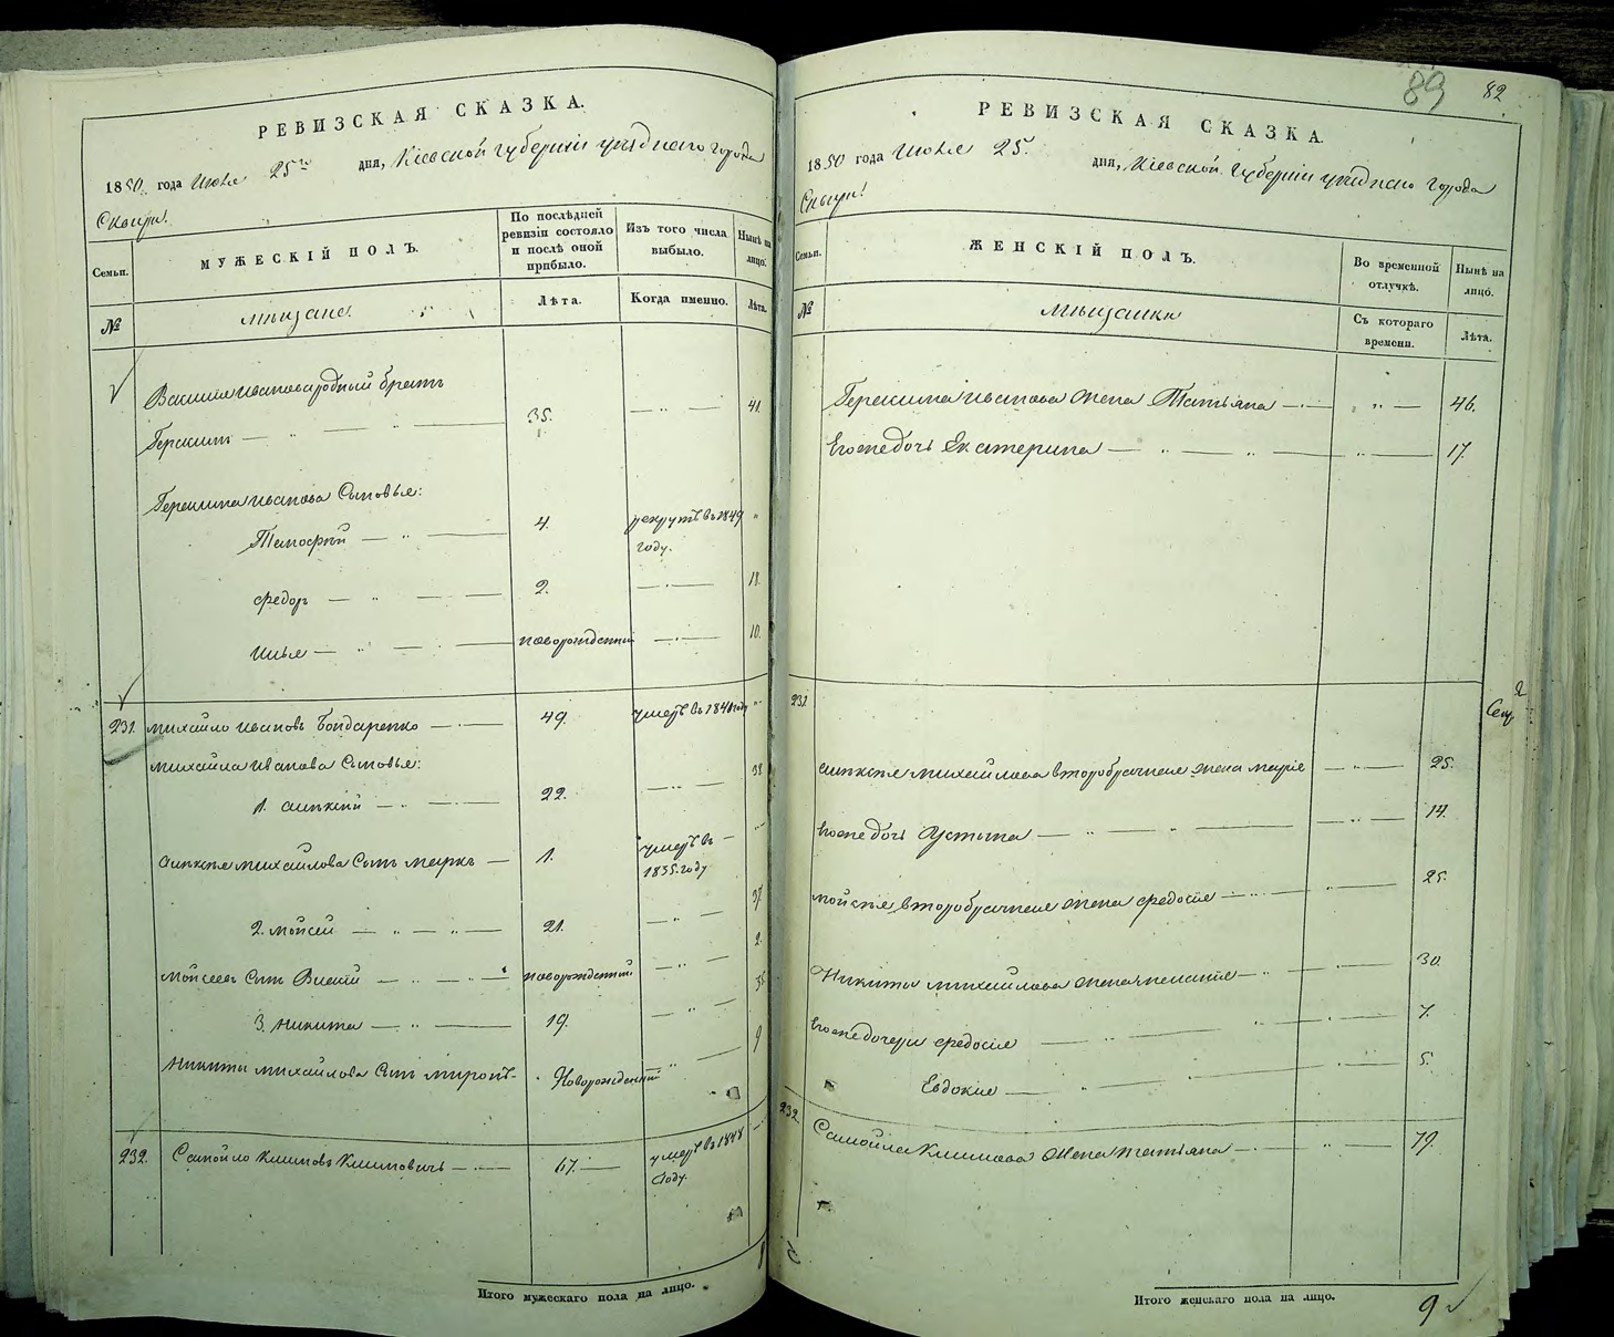 РЕВИЗСКАЯ СКАЗКА.
1850 года Июля 25го дня, Кіевской губерніи уѣзднаго города
Сквиры.
Семьи.
МУЖЕСКІЙ ПОЛЪ.
По послѣдней ревизіи состояло и послѣ оной прибыло.
Изъ того числа выбыло.
Нынѣ на лицо.
№
мѣщане.
Лѣта.
Когда именно.
Лѣта.
Василія Иванова родный братъ
Герасимъ — " — " — 35. — " — 41.
Герасима Иванова Сыновья:
Тимофѣй — " — 4. рекрутъ въ 1849 году. "
Федоръ — " — 2. — " — 18.
Илья — " — новорожденный — " — 10.
231. Михайло Ивановъ Бондаренко — " — 49. умеръ въ 1841 году "
Михайла Иванова Сыновья:
1. Алексѣй — " — 22. — " — 38
Алексѣя Михайлова Сынъ Марко — 1. умеръ въ 1835. году "
2. Мойсей — " — " — 21. — " — 37.
Мойсеевъ Сынъ — " — новорожденный — " — 2.
3. Никита — " — 19. — " — 35
Никиты Михайлова Сынъ Миронъ — Новорожденный " — 9
232. Самойло Климовъ Климовичъ — " — 67. — умеръ въ 1848 году.
8
Итого мужескаго пола на лицо.
89 82
РЕВИЗСКАЯ СКАЗКА.
1850 года Июля 25. дня, Кіевской Губерніи уѣзднаго города
Сквиры!
Семьи.
ЖЕНСКІЙ ПОЛЪ.
Во временной отлучкѣ.
Нынѣ на лицо.
№
мѣщанки
Съ котораго времени.
Лѣта.
Герасима Иванова жена Татьяна — " — 46.
Его же дочь Екатерина — " — " — " — 17.
231.
Алексѣя Михайлова второбрачная жена Марія — " — 25.
Его же дочь Устына — " — " — 14.
Мойсея второбрачная жена Федосія — " — " — 25.
Никиты Михайлова жена Меланія — " — " — 30.
Его же дочери Федосія — " — " — 7.
Евдокія — " — " — 5.
232.
Самойла Климова жена Татьяна — " — " — 79.
Итого женскаго пола на лицо.
9